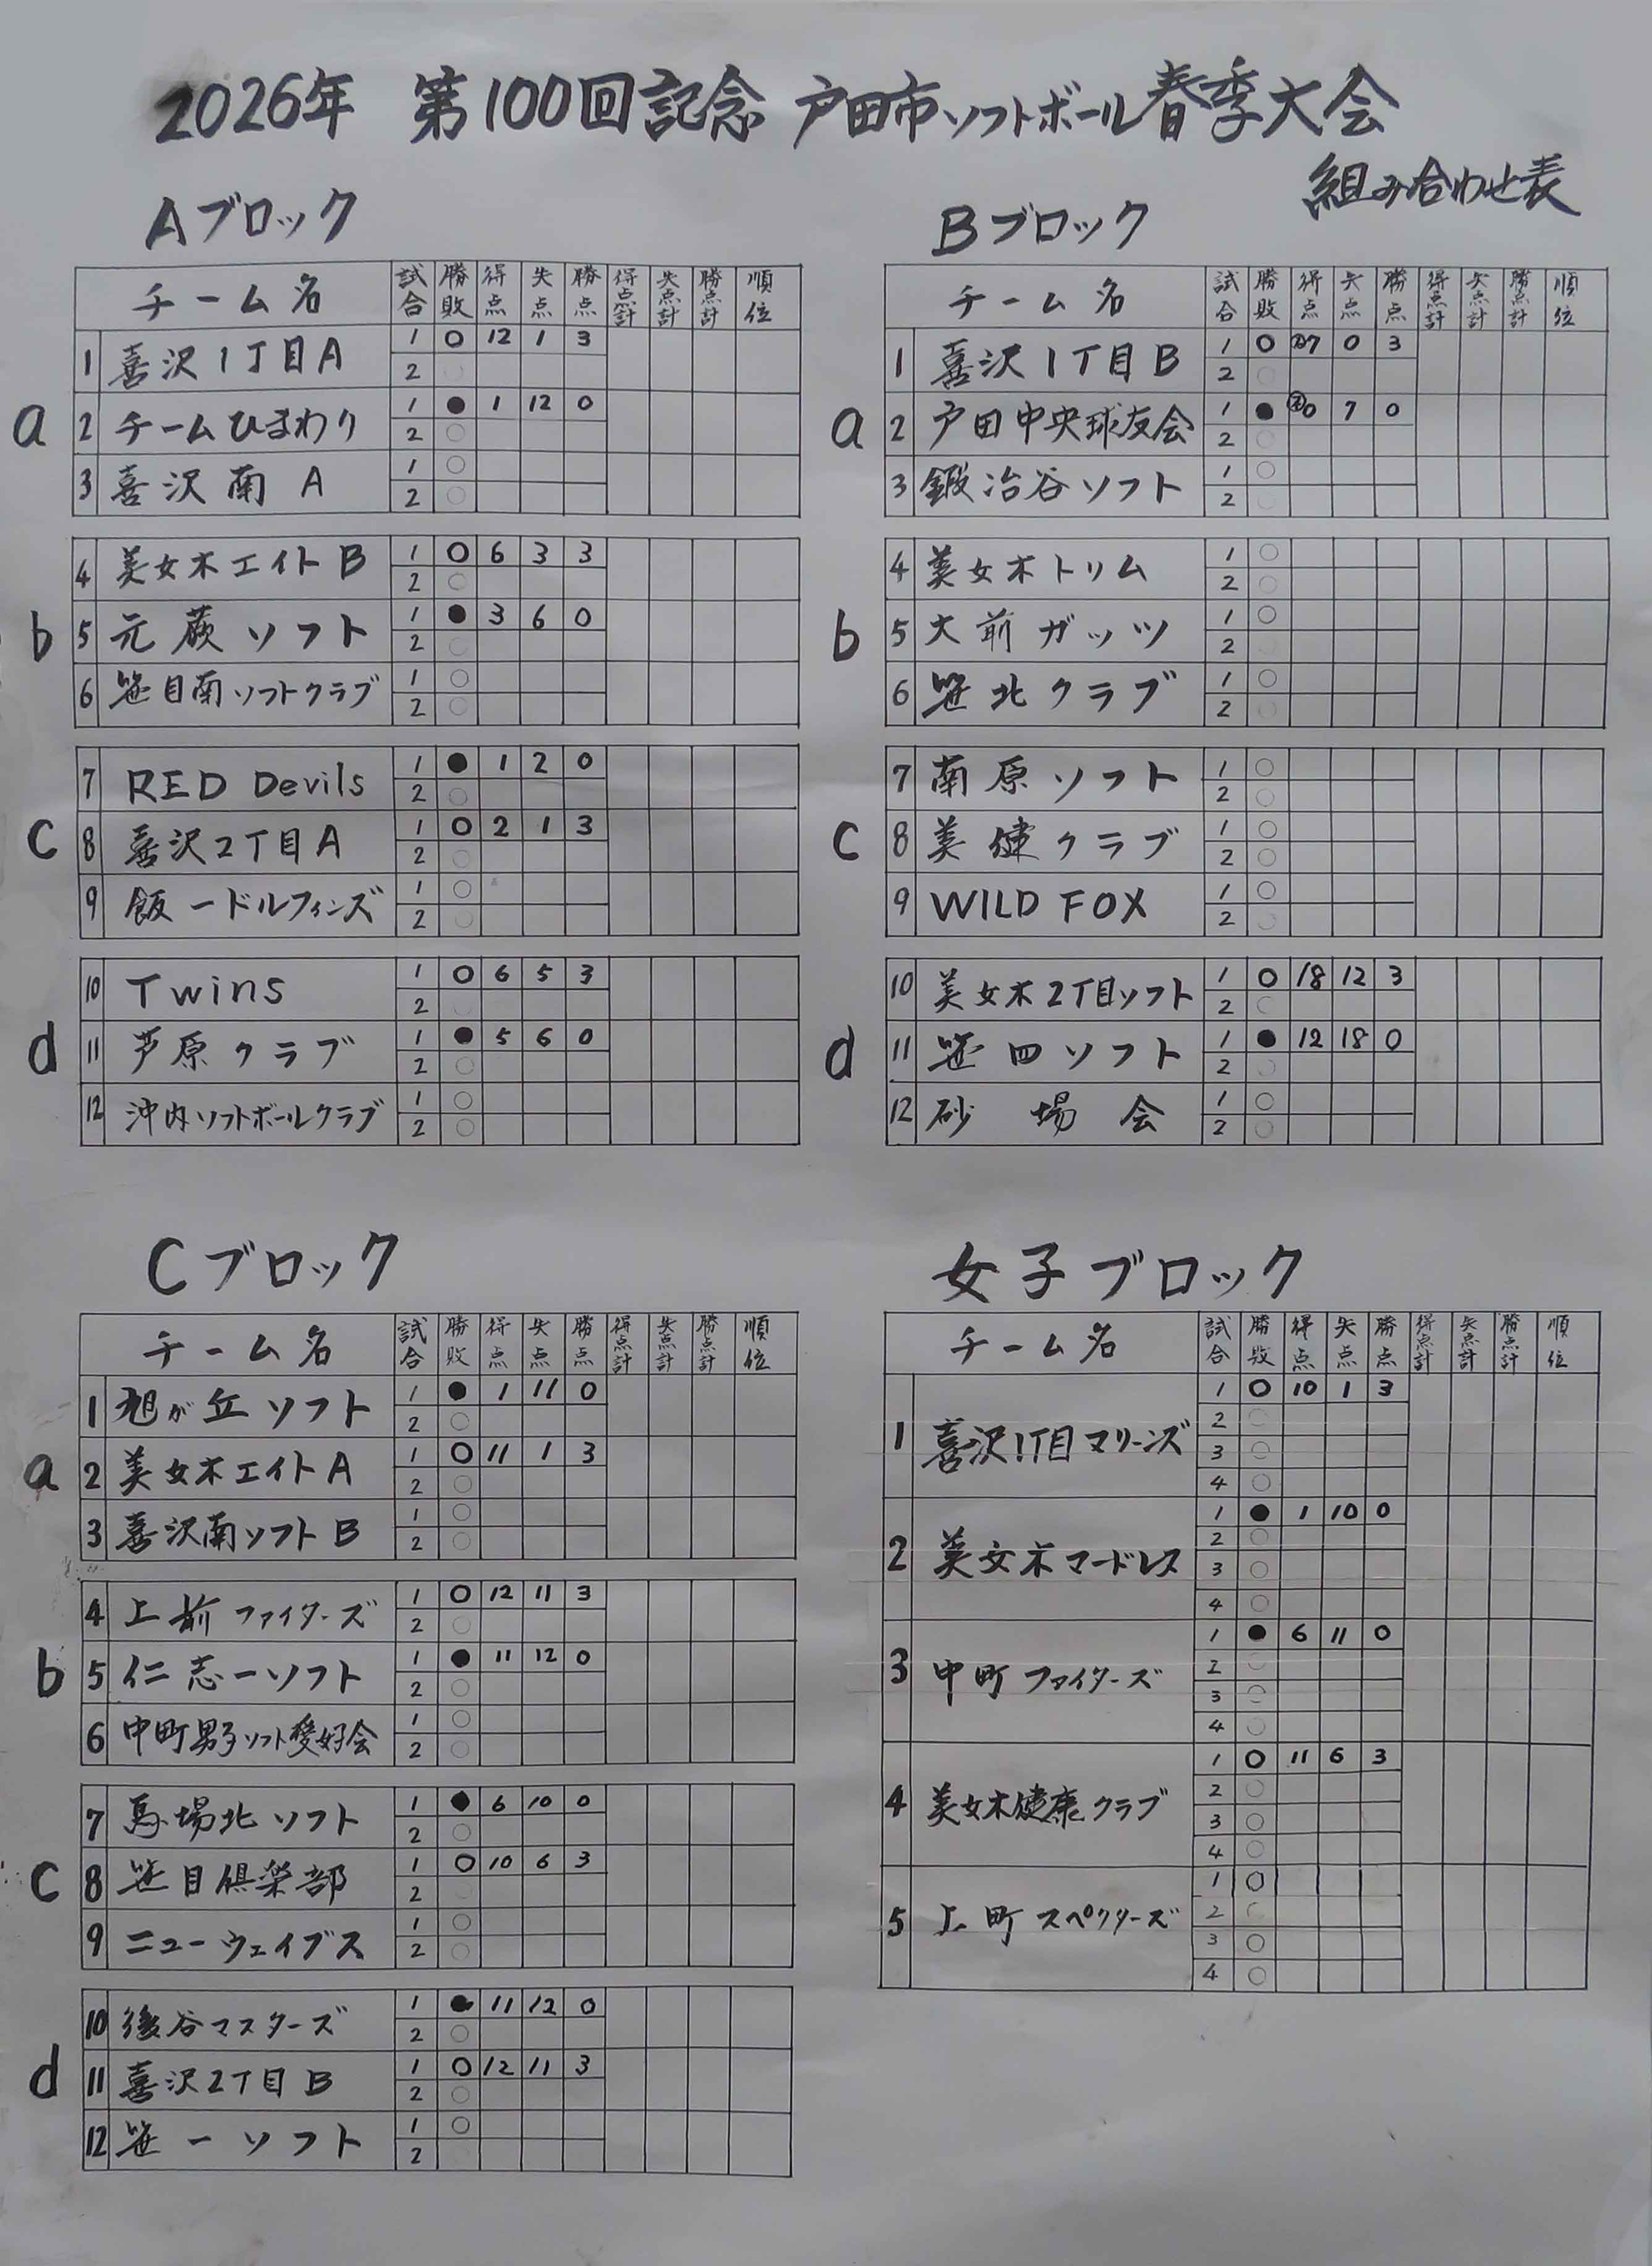 2026年 第100回記念 戸田市ソフトボール春季大会
組み合わせ表
Aブロック
チーム名 試合 勝敗 得点 失点 勝点 得点計 失点計 勝点計 順位
a
1 喜沢1丁目A 1 ○ 12 1 3
2 ○
2 チームひまわり 1 ● 1 12 0
2 ○
3 喜沢南A 1 ○
2 ○
b
4 美女木エイトB 1 ○ 6 3 3
2 ○
5 元蕨ソフト 1 ● 3 6 0
2 ○
6 笹目南ソフトクラブ 1 ○
2 ○
c
7 RED Devils 1 ● 1 2 0
2 ○
8 喜沢2丁目A 1 ○ 2 1 3
2 ○
9 飯一ドルフィンズ 1 ○
2 ○
d
10 Twins 1 ○ 6 5 3
2
11 芦原クラブ 1 ● 5 6 0
2 ○
12 沖内ソフトボールクラブ 1 ○
2 ○
Bブロック
チーム名 試合 勝敗 得点 失点 勝点 得点計 失点計 勝点計 順位
a
1 喜沢1丁目B 1 ○ 7 0 3
2 ○
2 戸田中央球友会 1 ● 0 7 0
2 ○
3 鍛冶谷ソフト 1 ○
2 ○
b
4 美女木トリム 1 ○
2 ○
5 大前ガッツ 1 ○
2 ○
6 笹北クラブ 1 ○
2 ○
c
7 南原ソフト 1 ○
2 ○
8 美健クラブ 1 ○
2 ○
9 WILD FOX 1 ○
2 ○
d
10 美女木2丁目ソフト 1 ○ 18 12 3
2 ○
11 笹四ソフト 1 ● 12 18 0
2 ○
12 砂場会 1 ○
2 ○
Cブロック
チーム名 試合 勝敗 得点 失点 勝点 得点計 失点計 勝点計 順位
a
1 旭が丘ソフト 1 ● 1 11 0
2 ○
2 美女木エイトA 1 ○ 11 1 3
2 ○
3 喜沢南ソフトB 1 ○
2 ○
b
4 上前ファイターズ 1 ○ 12 11 3
2 ○
5 仁志一ソフト 1 ● 11 12 0
2 ○
6 中町男子ソフト愛好会 1 ○
2 ○
c
7 馬場北ソフト 1 ● 6 10 0
2 ○
8 笹目倶楽部 1 ○ 10 6 3
2
9 ニューウェイブス 1 ○
2 ○
d
10 後谷マスターズ 1 ● 11 12 0
2 ○
11 喜沢2丁目B 1 ○ 12 11 3
2 ○
12 笹一ソフト 1 ○
2
女子ブロック
チーム名 試合 勝敗 得点 失点 勝点 得点計 失点計 勝点計 順位
1 喜沢1丁目マリーンズ 1 ○ 10 1 3
2 ○
3 ○
4 ○
2 美女木マードレス 1 ● 1 10 0
2 ○
3 ○
4 ○
3 中町ファイターズ 1 ● 6 11 0
2 ○
3 ○
4 ○
4 美女木健康クラブ 1 ○ 11 6 3
2 ○
3 ○
4 ○
5 上町スペクターズ 1 ○
2 ○
3 ○
4 ○